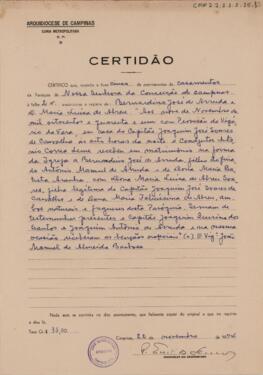 ARQUIDIOCESE DE CAMPINAS
CURIA METROPOLITANA
CERTIDÃO
CERTIFICO que, revendo o livro de assentamentos de casamentos
da Paróquia de Nossa Senhora da Conceição de Campinas
a folha encontrei o registro de: Bernardino José de Arruda e
D. Maria Luisa de Abreu: "Aos oito de Novembro de
mil oitocentos e quarenta e um com Provisão do Vigá-
rio da Vara, em casa do Capitão Joaquim José Soares
de Carvalho as sete horas da noite e
nio Correa bem, recebem em matrimonio na forma
da Igreja a Bernardino José de Arruda, filho legitimo
de Antonio Manuel de Arruda e de Dona Maria
Aranha, com Dona Maria Luisa de Abreu Soa-
res, filha legitima do Capitão Joaquim José Soares de
Carvalho e de Dona Maria de Abreu, am-
bos naturais e fregueses desta Paróquia. Serviram de
testemunhas presentes o Capitão Joaquim
Santos e Joaquim Antonio de Arruda e na mesma
ocasião receberam as benções nupciais" (a) O Vig° José
Manuel de Almeida Barbosa
Nada mais se contém no dito assentamento, que fielmente copiei do original e que me reporto
e dou fé.
Taxa Cr.$
Campinas, 22 de novembro de 19